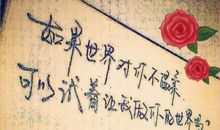 如果世界对你不温柔
可以试着让我做你的世界吗?